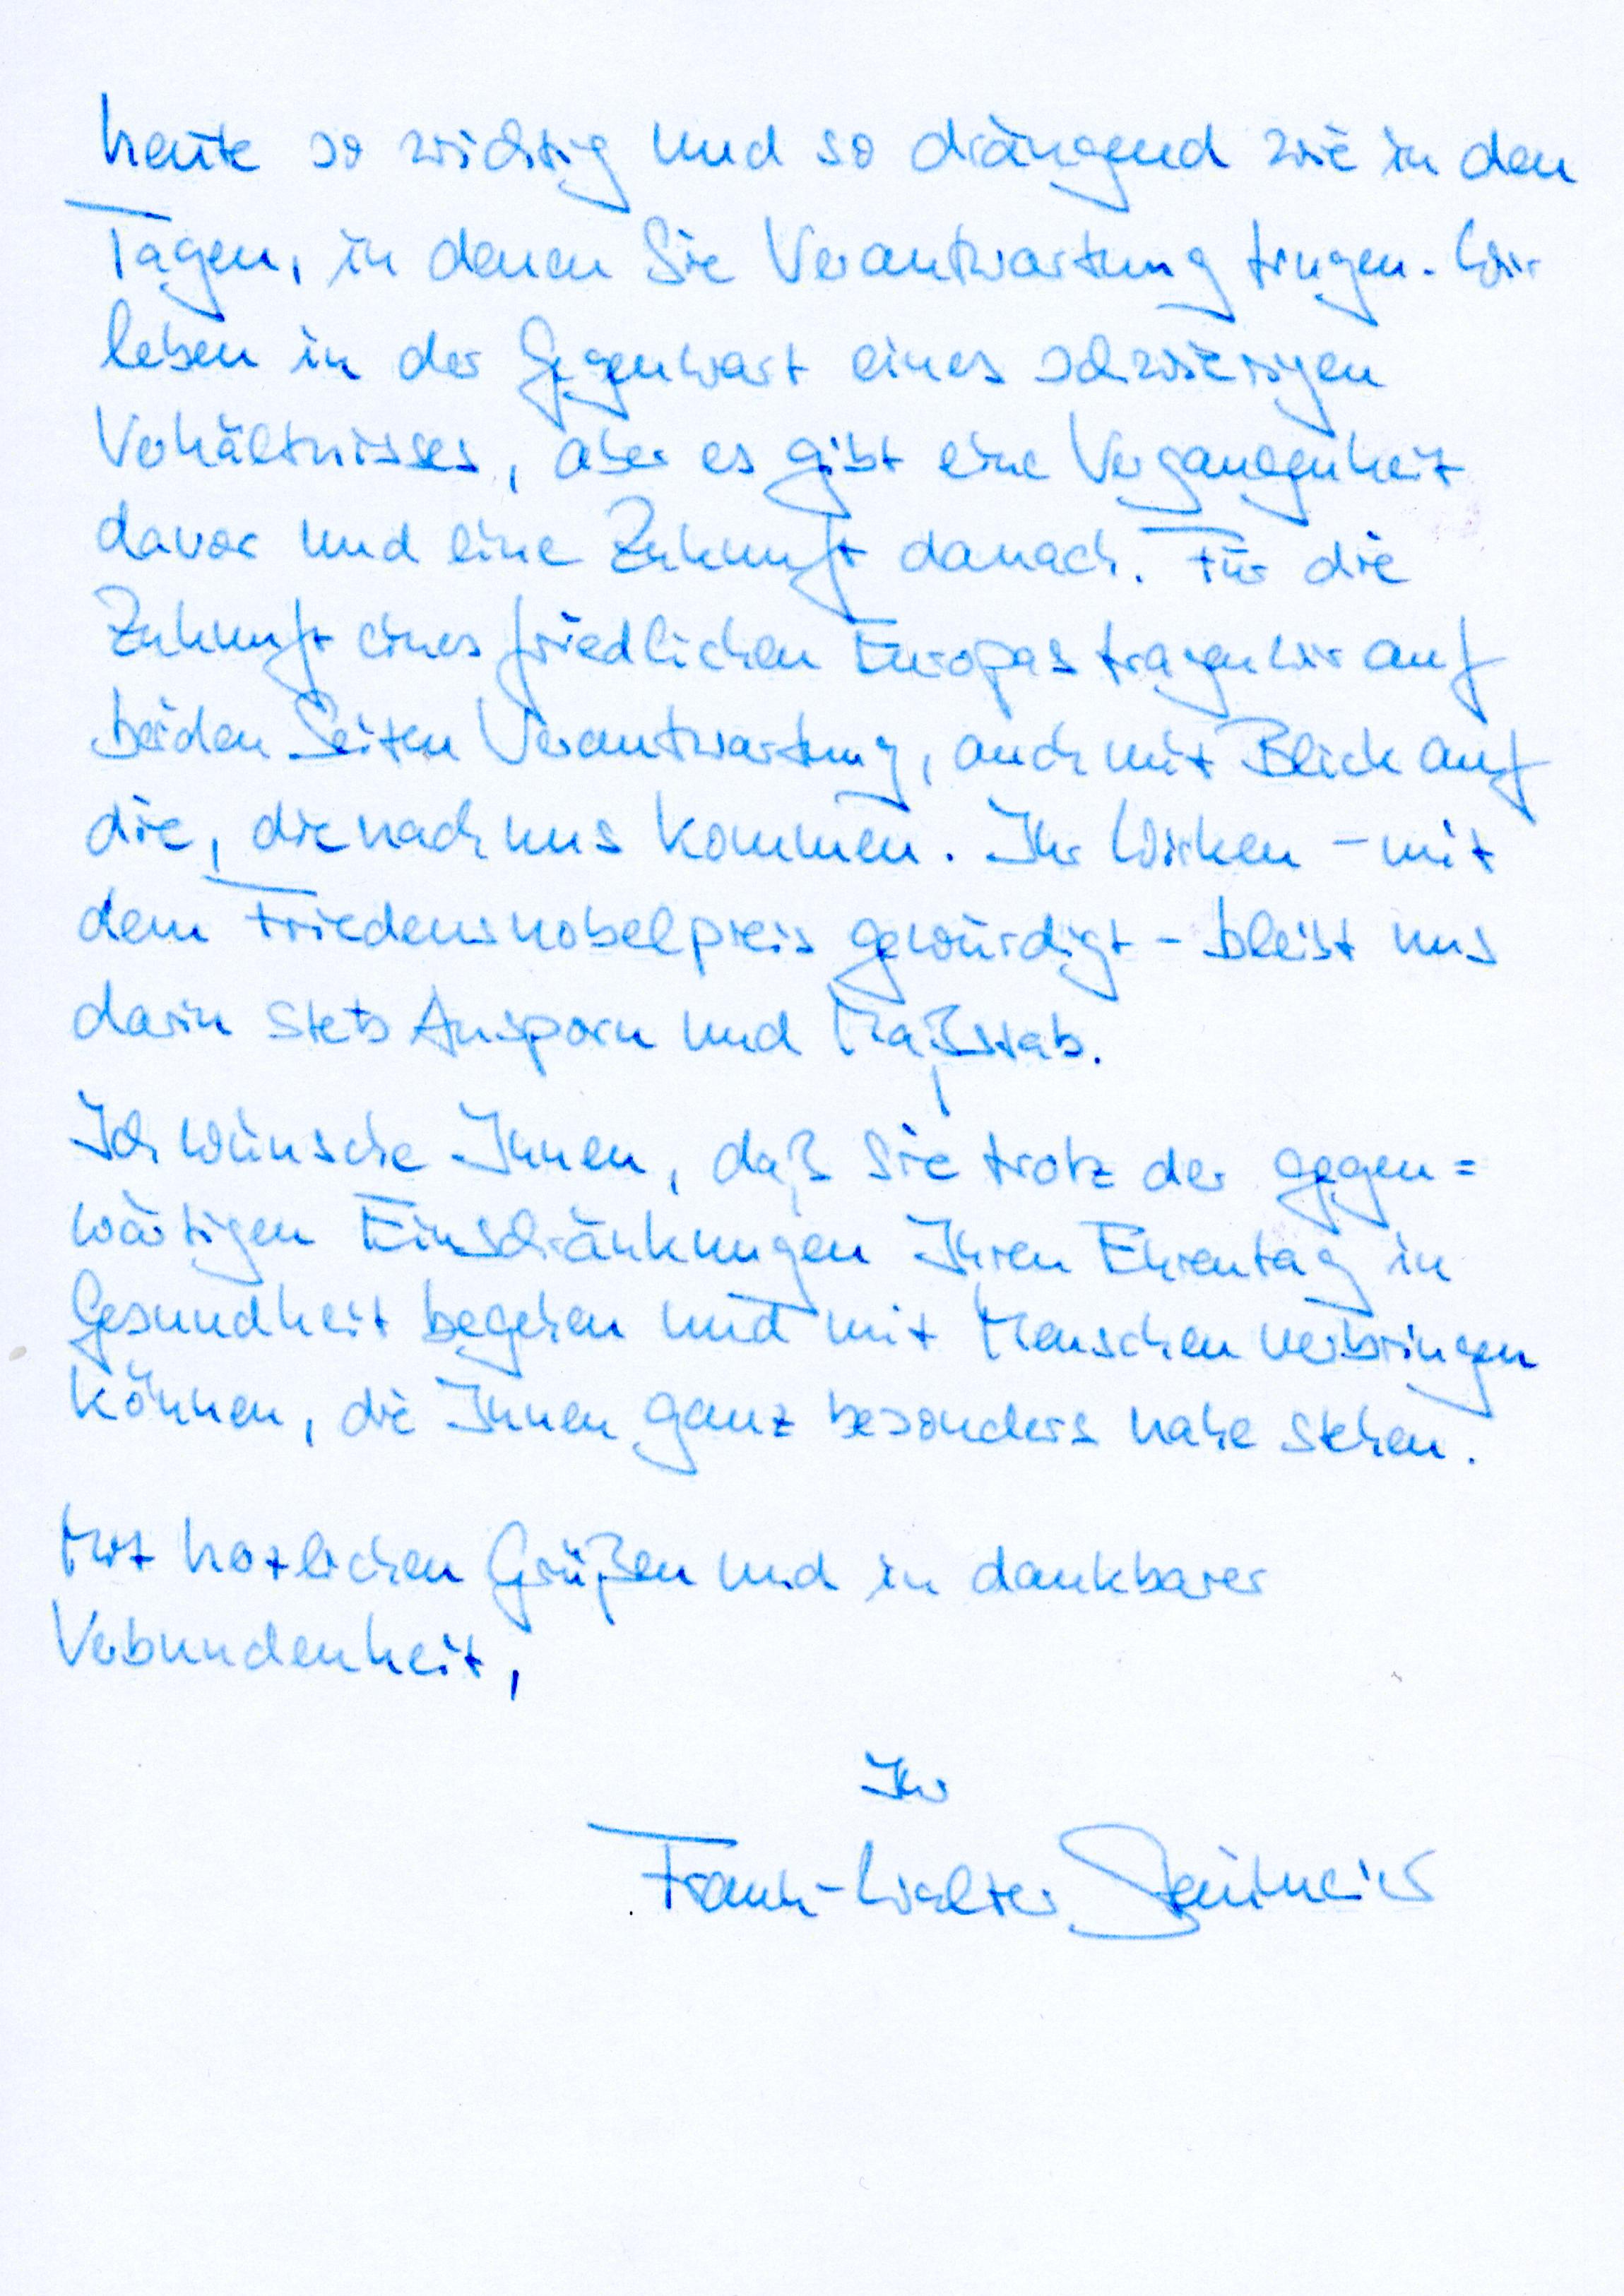 heute so wichtig und so drängend wie in den
Tagen, in denen Sie Verantwortung trugen. Wir
leben in der Gegenwart eines schwierigen
Verhältnisses, aber es gibt eine Vergangenheit
davor und eine Zukunft danach. Für die
Zukunft eines friedlichen Europas tragen wir auf
beiden Seiten Verantwortung, auch mit Blick auf
die, die nach uns kommen. Ihr Wirken – mit
dem Friedensnobelpreis gewürdigt – bleibt uns
darin stets Ansporn und Maßstab.
Ich wünsche Ihnen, daß Sie trotz der gegen=
wärtigen Einschränkungen Ihren Ehrentag in
Gesundheit begehen und mit Menschen verbringen
können, die Ihnen ganz besonders nahe stehen.
Mit herzlichen Grüßen und in dankbarer
Verbundenheit,
Ihr
Frank-Walter Steinmeier